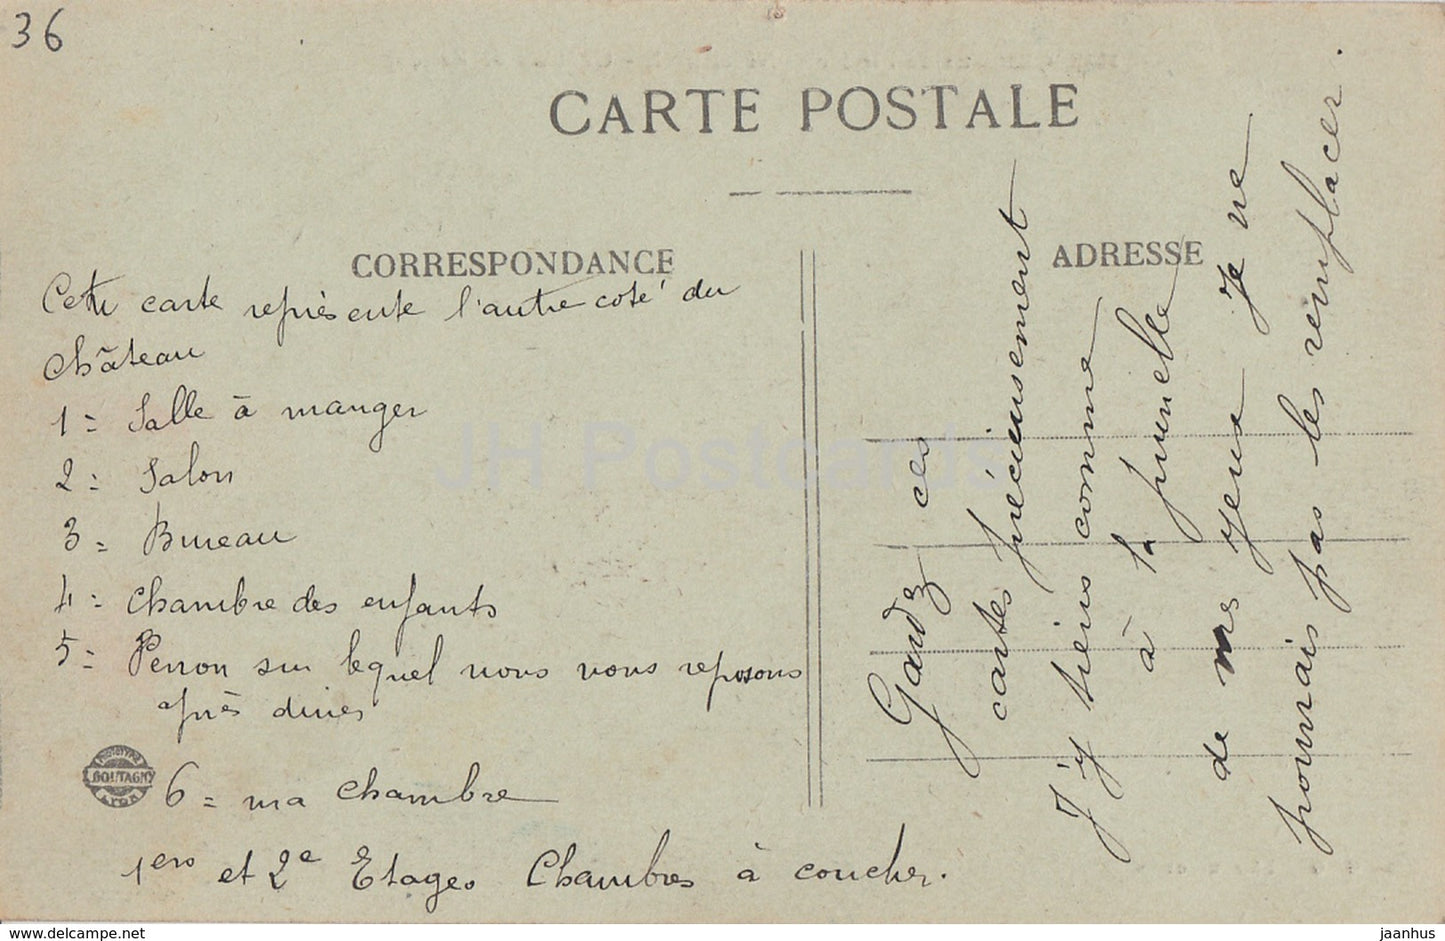 36
CARTE POSTALE
CORRESPONDANCE
ADRESSE
Cette carte représente l'autre coté du
château
1 = Salle à manger
2 = Salon
3 = Bureau
4 = Chambre des enfants
5 = Perron sur lequel nous nous reposons
après diner
6 = ma chambre
1ers et 2e Etages Chambres à coucher.
Gardez ces
cartes précieusement
J'y tiens comme
à la prunelle
de mes yeux je ne
pourrais pas les remplacer.
PHOTOTYPIE
BOUTAGNY
LYON
JH Postcards
www.delcampe.net
jaanhus